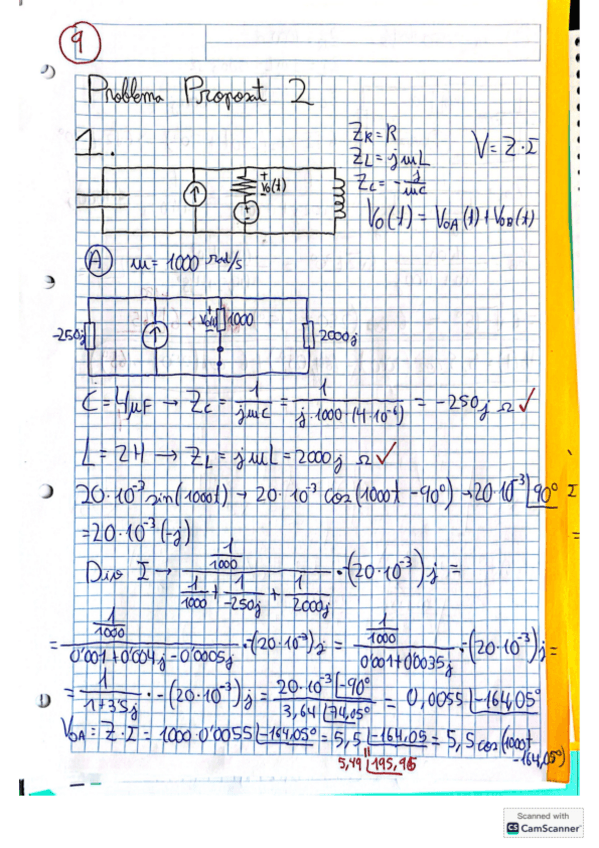 9
Problema Proposat 2
1.
Z_R = R
Z_L = jωL
Z_C = -j/ωC
V = Z·I
+ V_0(t)
V_0(t) = V_0A(t) + V_0B(t)
A ω = 1000 rad/s
-250j
1000
2000j
C = 4μF → Z_C = 1/jωC = 1/j·1000·(4·10^-6) = -250j Ω ✓
L = 2H → Z_L = jωL = 2000j Ω ✓
20·10^-3 sin(1000t) → 20·10^-3 cos(1000t - 90°) → 20·10^-3 |90° I
= 20·10^-3 (-j)
Div I → (1/1000)/(1/1000 + 1/-250j + 1/2000j) · -(20·10^-3)j =
= (1/1000)/(0'001 + 0'004j - 0'0005j) · -(20·10^-3)j = (1/1000)/(0'001 + 0'0035j) · -(20·10^-3)j =
= 1/(1+3'5j) · -(20·10^-3)j = 20·10^-3 |-90° / 3,64 |74,05° = 0,0055 |-164,05°
V_0A = Z·I = 1000·0'0055 |-164,05° = 5,5 |-164,05 = 5,5 cos(1000t - 164,05°)
5,49 |195,95
Scanned with
CS CamScanner